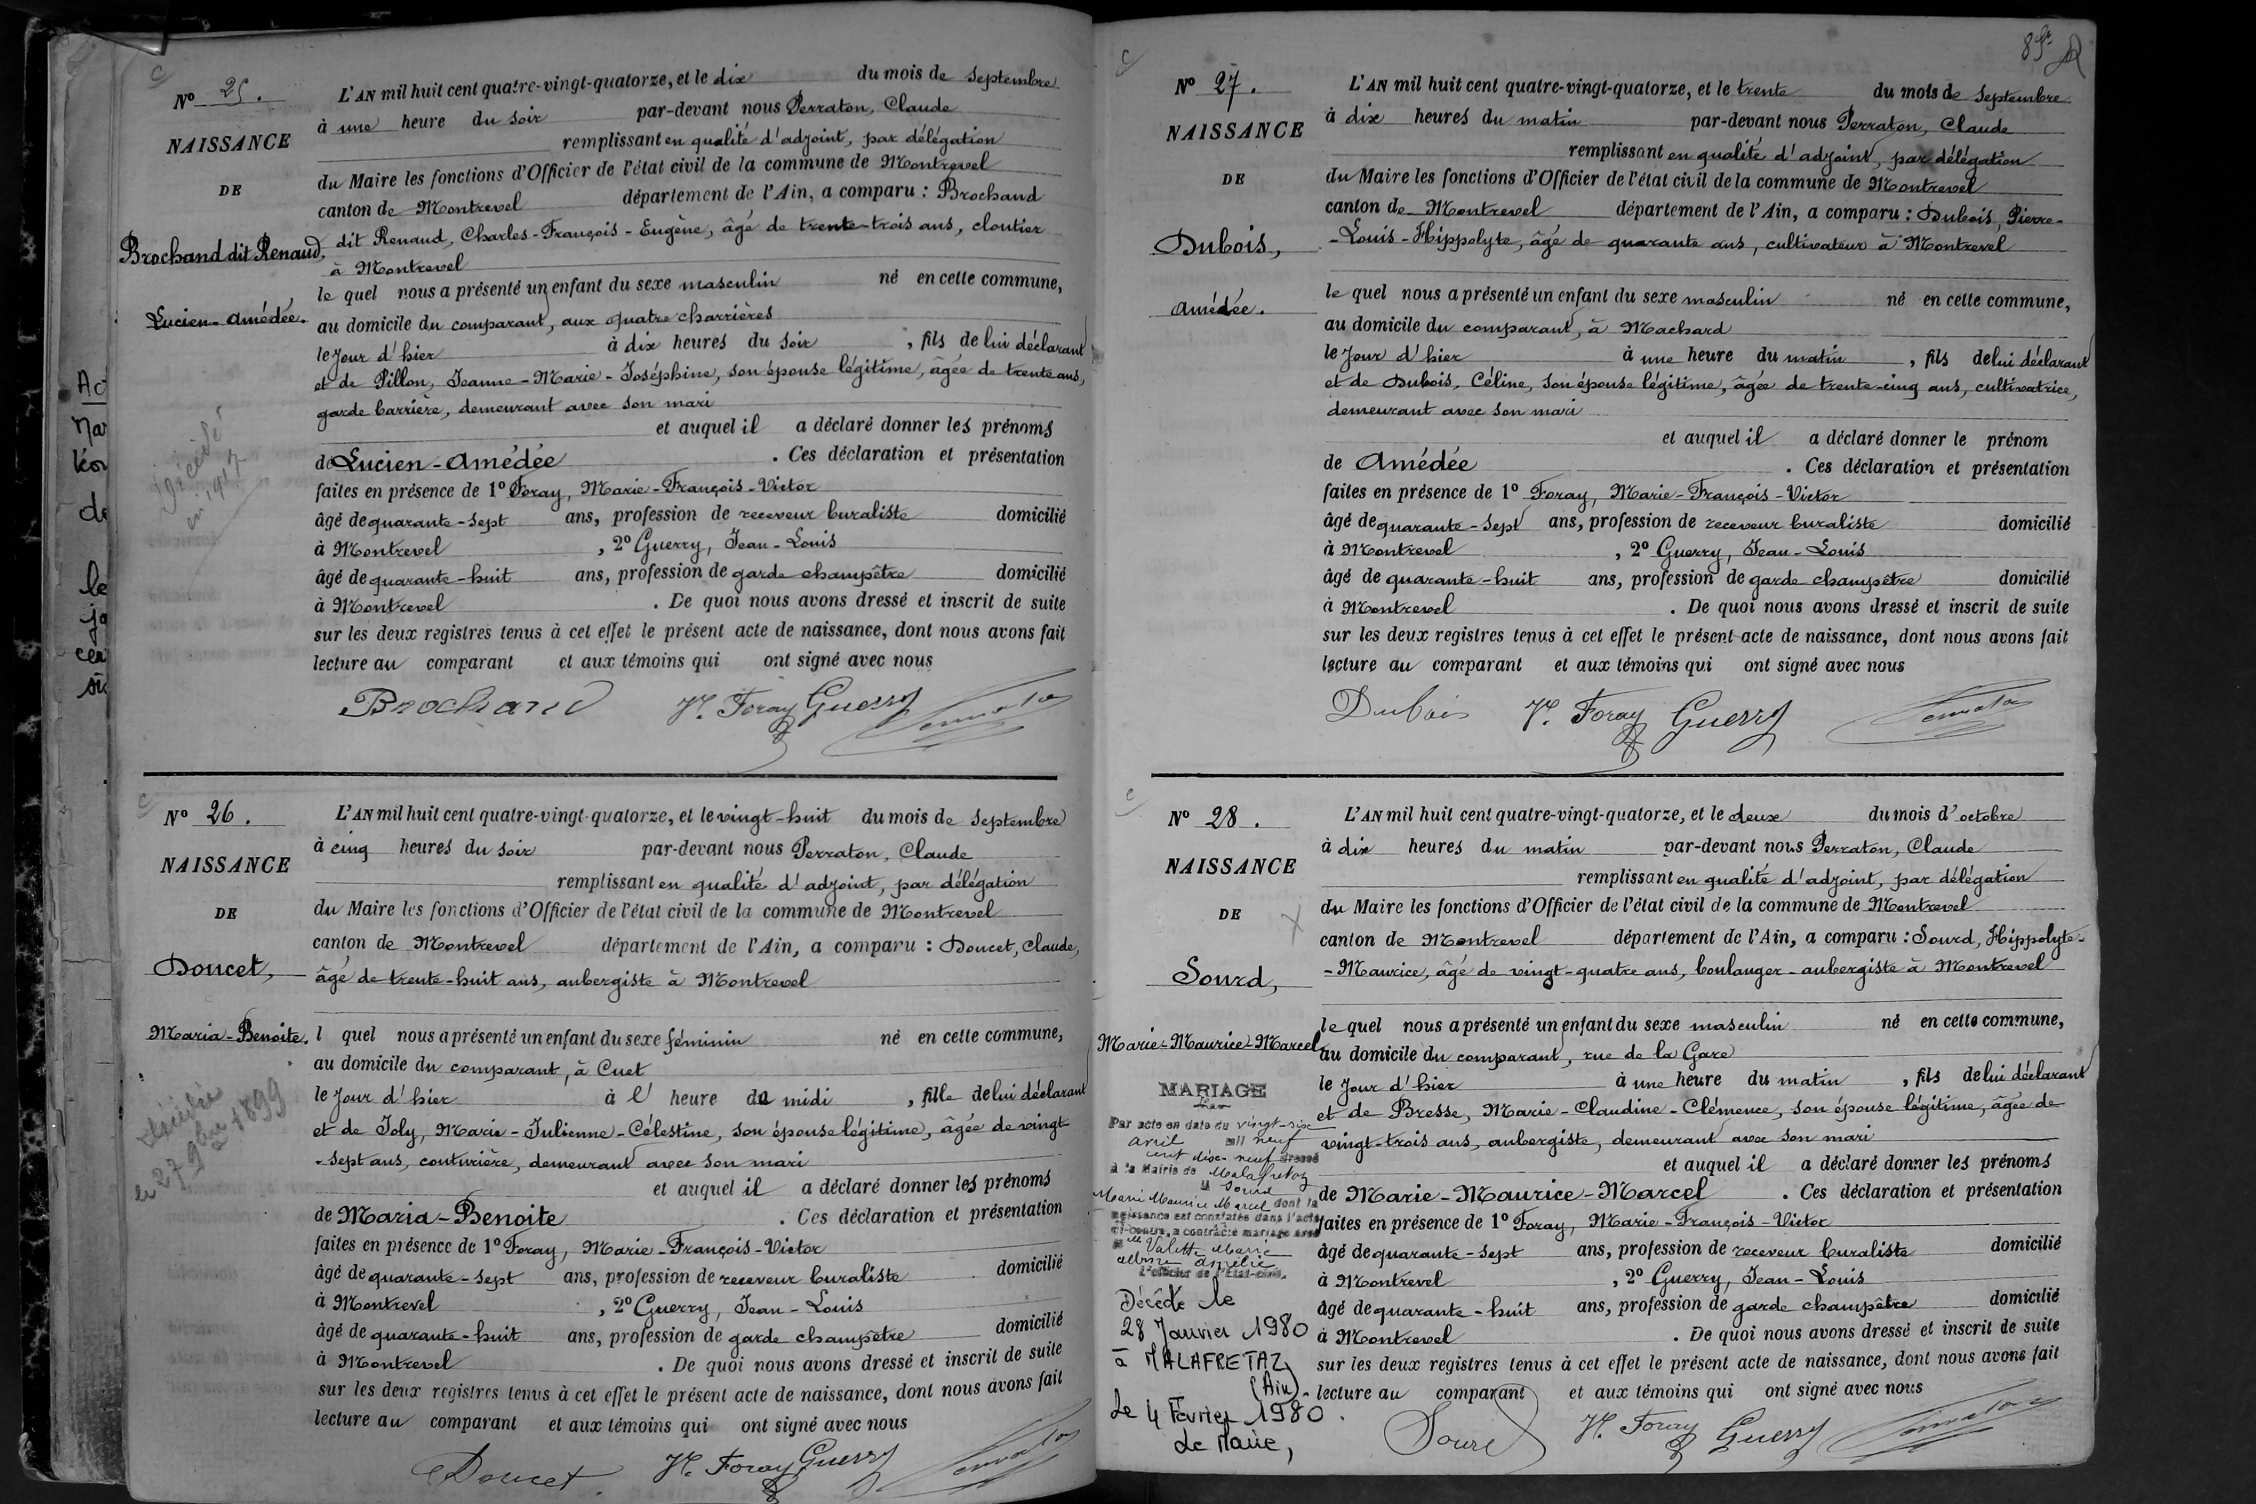 Nº 25.
NAISSANCE
DE
Brochand dit Renaud,
Lucien-Amédée.
décédé
en 1917
L'AN mil huit cent quatre-vingt-quatorze, et le dix du mois de septembre
à une heure du soir par-devant nous Perraton, Claude
remplissant en qualité d'adjoint, par délégation
du Maire les fonctions d'Officier de l'état civil de la commune de Montrevel
canton de Montrevel département de l'Ain, a comparu : Brochand
dit Renaud, Charles-François-Eugène, âgé de trente-trois ans, cloutier
à Montrevel
le quel nous a présenté un enfant du sexe masculin né en cette commune,
au domicile du comparant, aux quatre charrières
le jour d'hier à dix heures du soir, fils de lui déclarant
et de Pillon, Jeanne-Marie-Joséphine, son épouse légitime, âgée de trente ans,
garde barrière, demeurant avec son mari
et auquel il a déclaré donner les prénoms
de Lucien-Amédée. Ces déclaration et présentation
faites en présence de 1º Foray, Marie-François-Victor
âgé de quarante-sept ans, profession de receveur buraliste domicilié
à Montrevel, 2º Guerry, Jean-Louis
âgé de quarante-huit ans, profession de garde champêtre domicilié
à Montrevel. De quoi nous avons dressé et inscrit de suite
sur les deux registres tenus à cet effet le présent acte de naissance, dont nous avons fait
lecture au comparant et aux témoins qui ont signé avec nous
Brochand Vr. Foray Guerry Perraton
Nº 26.
NAISSANCE
DE
Doucet,
Maria-Benoite.
décédée
le 27 9bre 1899
L'AN mil huit cent quatre-vingt-quatorze, et le vingt-huit du mois de septembre
à cinq heures du soir par-devant nous Perraton, Claude
remplissant en qualité d'adjoint, par délégation
du Maire les fonctions d'Officier de l'état civil de la commune de Montrevel
canton de Montrevel département de l'Ain, a comparu : Doucet, Claude,
âgé de trente-huit ans, aubergiste à Montrevel
l quel nous a présenté un enfant du sexe féminin né en cette commune,
au domicile du comparant, à Cuet
le jour d'hier à l' heure de midi, fille de lui déclarant
et de Joly, Marie-Julienne-Célestine, son épouse légitime, âgée de vingt-
-sept ans, couturière, demeurant avec son mari
et auquel il a déclaré donner les prénoms
de Maria-Benoite. Ces déclaration et présentation
faites en présence de 1º Foray, Marie-François-Victor
âgé de quarante-sept ans, profession de receveur buraliste domicilié
à Montrevel, 2º Guerry, Jean-Louis
âgé de quarante-huit ans, profession de garde champêtre domicilié
à Montrevel. De quoi nous avons dressé et inscrit de suite
sur les deux registres tenus à cet effet le présent acte de naissance, dont nous avons fait
lecture au comparant et aux témoins qui ont signé avec nous
Doucet Vr. Foray Guerry Perraton
Nº 27.
NAISSANCE
DE
Dubois,
Amédée.
L'AN mil huit cent quatre-vingt-quatorze, et le trente du mois de septembre
à dix heures du matin par-devant nous Perraton, Claude
remplissant en qualité d'adjoint, par délégation
du Maire les fonctions d'Officier de l'état civil de la commune de Montrevel
canton de Montrevel département de l'Ain, a comparu : Dubois, Pierre-
-Louis-Hippolyte, âgé de quarante ans, cultivateur à Montrevel
le quel nous a présenté un enfant du sexe masculin né en cette commune,
au domicile du comparant, à Machard
le jour d'hier à une heure du matin, fils de lui déclarant
et de Dubois, Céline, son épouse légitime, âgée de trente-cinq ans, cultivatrice,
demeurant avec son mari
et auquel il a déclaré donner le prénom
de Amédée. Ces déclaration et présentation
faites en présence de 1º Foray, Marie-François-Victor
âgé de quarante-sept ans, profession de receveur buraliste domicilié
à Montrevel, 2º Guerry, Jean-Louis
âgé de quarante-huit ans, profession de garde champêtre domicilié
à Montrevel. De quoi nous avons dressé et inscrit de suite
sur les deux registres tenus à cet effet le présent acte de naissance, dont nous avons fait
lecture au comparant et aux témoins qui ont signé avec nous
Dubois Vr. Foray Guerry Perraton
Nº 28.
NAISSANCE
DE
Sourd,
Marie-Maurice-Marcel
MARIAGE
Par acte en date du vingt-six
avril mil neuf
cent dix-neuf dressé
à la Mairie de Malafretaz
M Sourd
Marie Maurice Marcel dont la
naissance est constatée dans l'acte
ci-contre, a contracté mariage avec
Mlle Valett Marie
Albine Amélie
L'officier de l'Etat-civil,
Décédé le
28 Janvier 1980
à MALAFRETAZ
(Ain).
Le 4 Février 1980.
Le Maire,
L'AN mil huit cent quatre-vingt-quatorze, et le deux du mois d'octobre
à dix heures du matin par-devant nous Perraton, Claude
remplissant en qualité d'adjoint, par délégation
du Maire les fonctions d'Officier de l'état civil de la commune de Montrevel
canton de Montrevel département de l'Ain, a comparu : Sourd, Hippolyte-
-Maurice, âgé de vingt-quatre ans, boulanger-aubergiste à Montrevel
le quel nous a présenté un enfant du sexe masculin né en cette commune,
au domicile du comparant, rue de la Gare
le jour d'hier à une heure du matin, fils de lui déclarant
et de Bresse, Marie-Claudine-Clémence, son épouse légitime, âgée de
vingt-trois ans, aubergiste, demeurant avec son mari
et auquel il a déclaré donner les prénoms
de Marie-Maurice-Marcel. Ces déclaration et présentation
faites en présence de 1º Foray, Marie-François-Victor
âgé de quarante-sept ans, profession de receveur buraliste domicilié
à Montrevel, 2º Guerry, Jean-Louis
âgé de quarante-huit ans, profession de garde champêtre domicilié
à Montrevel. De quoi nous avons dressé et inscrit de suite
sur les deux registres tenus à cet effet le présent acte de naissance, dont nous avons fait
lecture au comparant et aux témoins qui ont signé avec nous
Sourd Vr. Foray Guerry Perraton